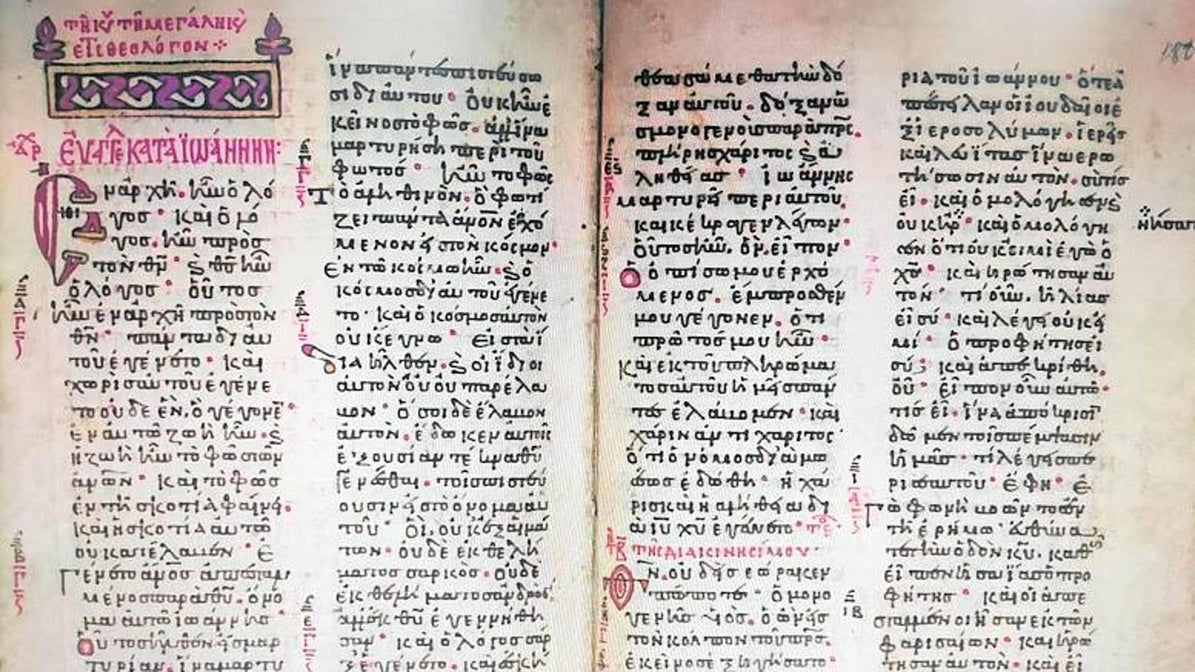 τῆ κυ τῆ μεγάλη κυ
ἔτι θεολόγον
ΕΥΑΓΓΕ ΚΑΤΑ ΙΩΑΝΝΗΝ:
Ἐν ἀρχῆ ἦν ὁ λό
γος· καὶ ὁ λό
γος ἦν πρὸς
τὸν θν̅· κ θς̅ ἦν
ὁ λόγος· οὗτος
ἦν ἐν ἀρχῆ πρὸς τὸν
θν̅· πάντα δι αὐ
τοῦ ἐγένετο· καὶ
χωρὶς αὐτοῦ ἐγένε
το οὐδὲ ἕν, ὃ γέγονε
ἐν αὐτῶ ζωὴ ἦν· κ
ἡ ζωὴ ἦν τὸ φῶς τῶν
ἀνων̅· καὶ τὸ φῶς
ἐν τῆ σκοτία φαίνει·
καὶ ἡ σκοτία αὐτὸ
οὐ κατέλαβεν· Ἐ
γένετο ἄνος̅ ἀπεσταλ
μένος παρὰ θυ̅· ὄνο
μα αὐτῶ ἰωάννης
οὗτος ἦλθεν εἰς μαρ
τυρίαν· ἵνα μαρτυ
ἵνα πάντες πιστεύσω
σι δι αὐτοῦ· οὐκ ἦν ἐ
κεῖνος τὸ φῶς· ἀλλ ἵνα
μαρτυρήση περὶ τοῦ
φωτός· ἦν τὸ φῶς
τὸ ἀληθινὸν· ὃ φωτί
ζει πάντα ἄνον̅ ἐρχό
μενον εἰς τὸν κόσμον·
Ἐν τῶ κόσμω ἦν· κ ὁ
κόσμος δι αὐτοῦ ἐγένε
το· καὶ ὁ κόσμος αὐτὸν
οὐκ ἔγνω· Εἰς τὰ ἴ
δια ἦλθεν· κ οἱ ἴδιοι
αὐτὸν οὐ παρέλα
βον· ὅσοι δὲ ἔλαβον
αὐτὸν· ἔδωκεν αὐτοῖς
ἐξουσίαν τέκνα θυ̅
γενέσθαι· τοῖς πιστεύ
ουσιν εἰς τὸ ὄνομα αὐ
τοῦ· Οἳ, οὐκ ἐξ αἱμά
των· οὐδὲ ἐκ θελή
ματος σαρκὸς· οὐδὲ
ἐκ θελήματος ἀνδρὸς·
ἀλλ ἐκ θυ̅ ἐγεννήθη
σαν· καὶ ὁ λόγος σὰρ
ξ ἐγένετο· καὶ ἐσκή
θεασάμεθα τὴν δό
ξαν αὐτοῦ· δόξαν ὡ
ς μονογενοῦς παρὰ πρς̅·
πλήρης χάριτος κ ἀ
ληθείας· ἰωάννης
μαρτυρεῖ περὶ αὐτοῦ·
καὶ κέκραγεν λέγων·
οὗτος ἦν, ὃν, εἶπον·
Ὁ ὀπίσω μου ἐρχό
μενος, ἔμπροσθέν
μου γέγονεν, ὅτι
πρῶτός μου ἦν·
καὶ ἐκ τοῦ πληρώμα
τος αὐτοῦ ἡμεῖς πάν
τες ἐλάβομεν· καὶ
χάριν ἀντὶ χάριτος·
ὅτι ὁ νόμος διὰ μω
σέως ἐδόθη· ἡ χά
ρις καὶ ἡ ἀλήθεια δι
ὰ ιυ̅ χυ̅ ἐγένετο·
ΤΗ Β ΤΗΣ ΔΙΑΚΙΝΗΣΙΜΟΥ·
Θν̅ οὐδεὶς ἑώρακεν
πώποτε· ὁ μονο
γενὴς υἱὸς· ὁ ὢν εἰς
τὸν κόλπον τοῦ πρς̅·
ἐκεῖνος ἐξηγήσατο·
ρία τοῦ ἰωάννου· ὅτε ἀ
πέστειλαν οἱ ἰουδαῖοι ἐ
ξ ἱεροσολύμων· ἱερεῖς
καὶ λευίτας ἵνα ἐρω
τήσωσιν αὐτὸν· σὺ τίς
εἶ· καὶ ὡμολόγησεν κ
οὐκ ἠρ· καὶ ὡμολόγη
σεν ὅτι οὐκ εἰμὶ ἐγὼ ὁ
χς̅· καὶ ἠρώτησαν αὐ
τόν· τί οὖν, ἠλίας
εἶ σύ· καὶ λέγει οὐκ εἰ
μί· ὁ προφήτης εἶ
σύ· καὶ ἀπεκρίθη,
οὔ· εἶπον οὖν αὐτῶ·
τίς εἶ· ἵνα ἀπόκρισιν
δῶμεν τοῖς πέμψασιν
ἡμᾶς· τί λέγεις πε
ρὶ σεαυτοῦ· ἔφη· ἐ
γὼ φωνὴ βοῶντος ἐν
τῆ ἐρήμω· εὐθύνα
τε τὴν ὁδὸν κυ̅, καθὼς
εἶπεν ἡσαΐας ὁ προ
φήτης· καὶ οἱ ἀπε
σταλμένοι ἦσαν ἐκ τῶν
φαρισαίων· καὶ ἠρώ
τησαν αὐτὸν· καὶ